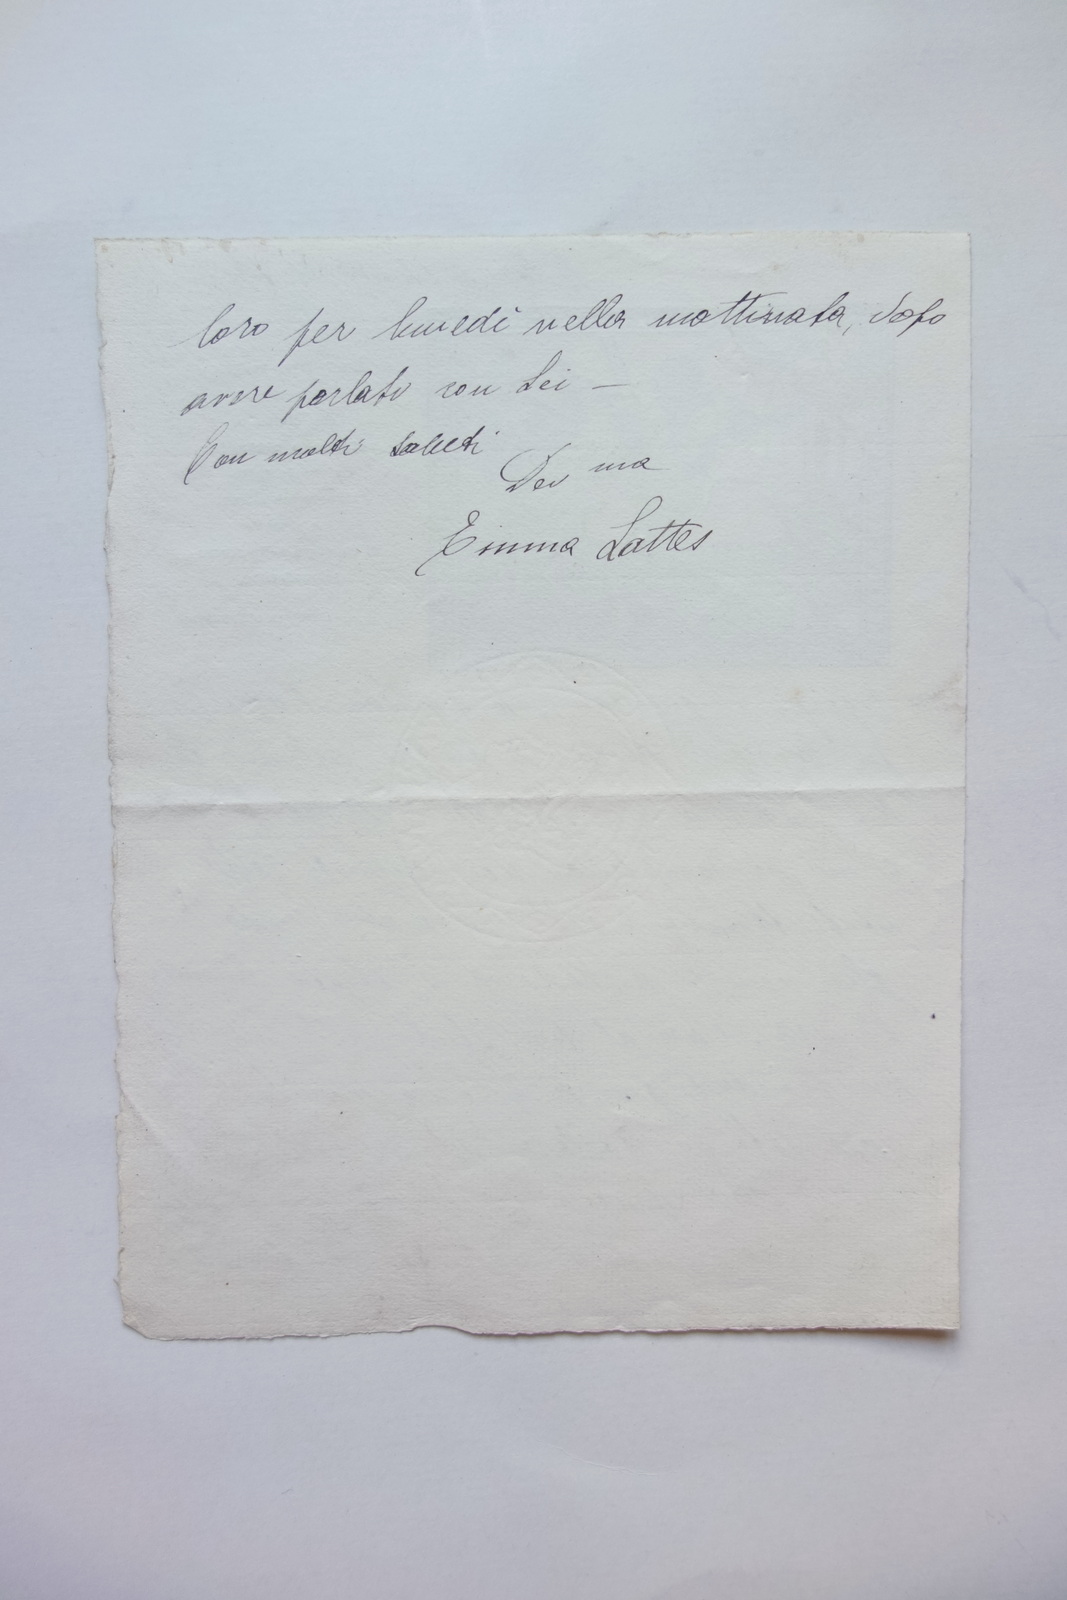 loro per lunedì nella mattinata, dopo
avere parlato con Lei –
Con molti saluti
Dev ma
Emma Lattes